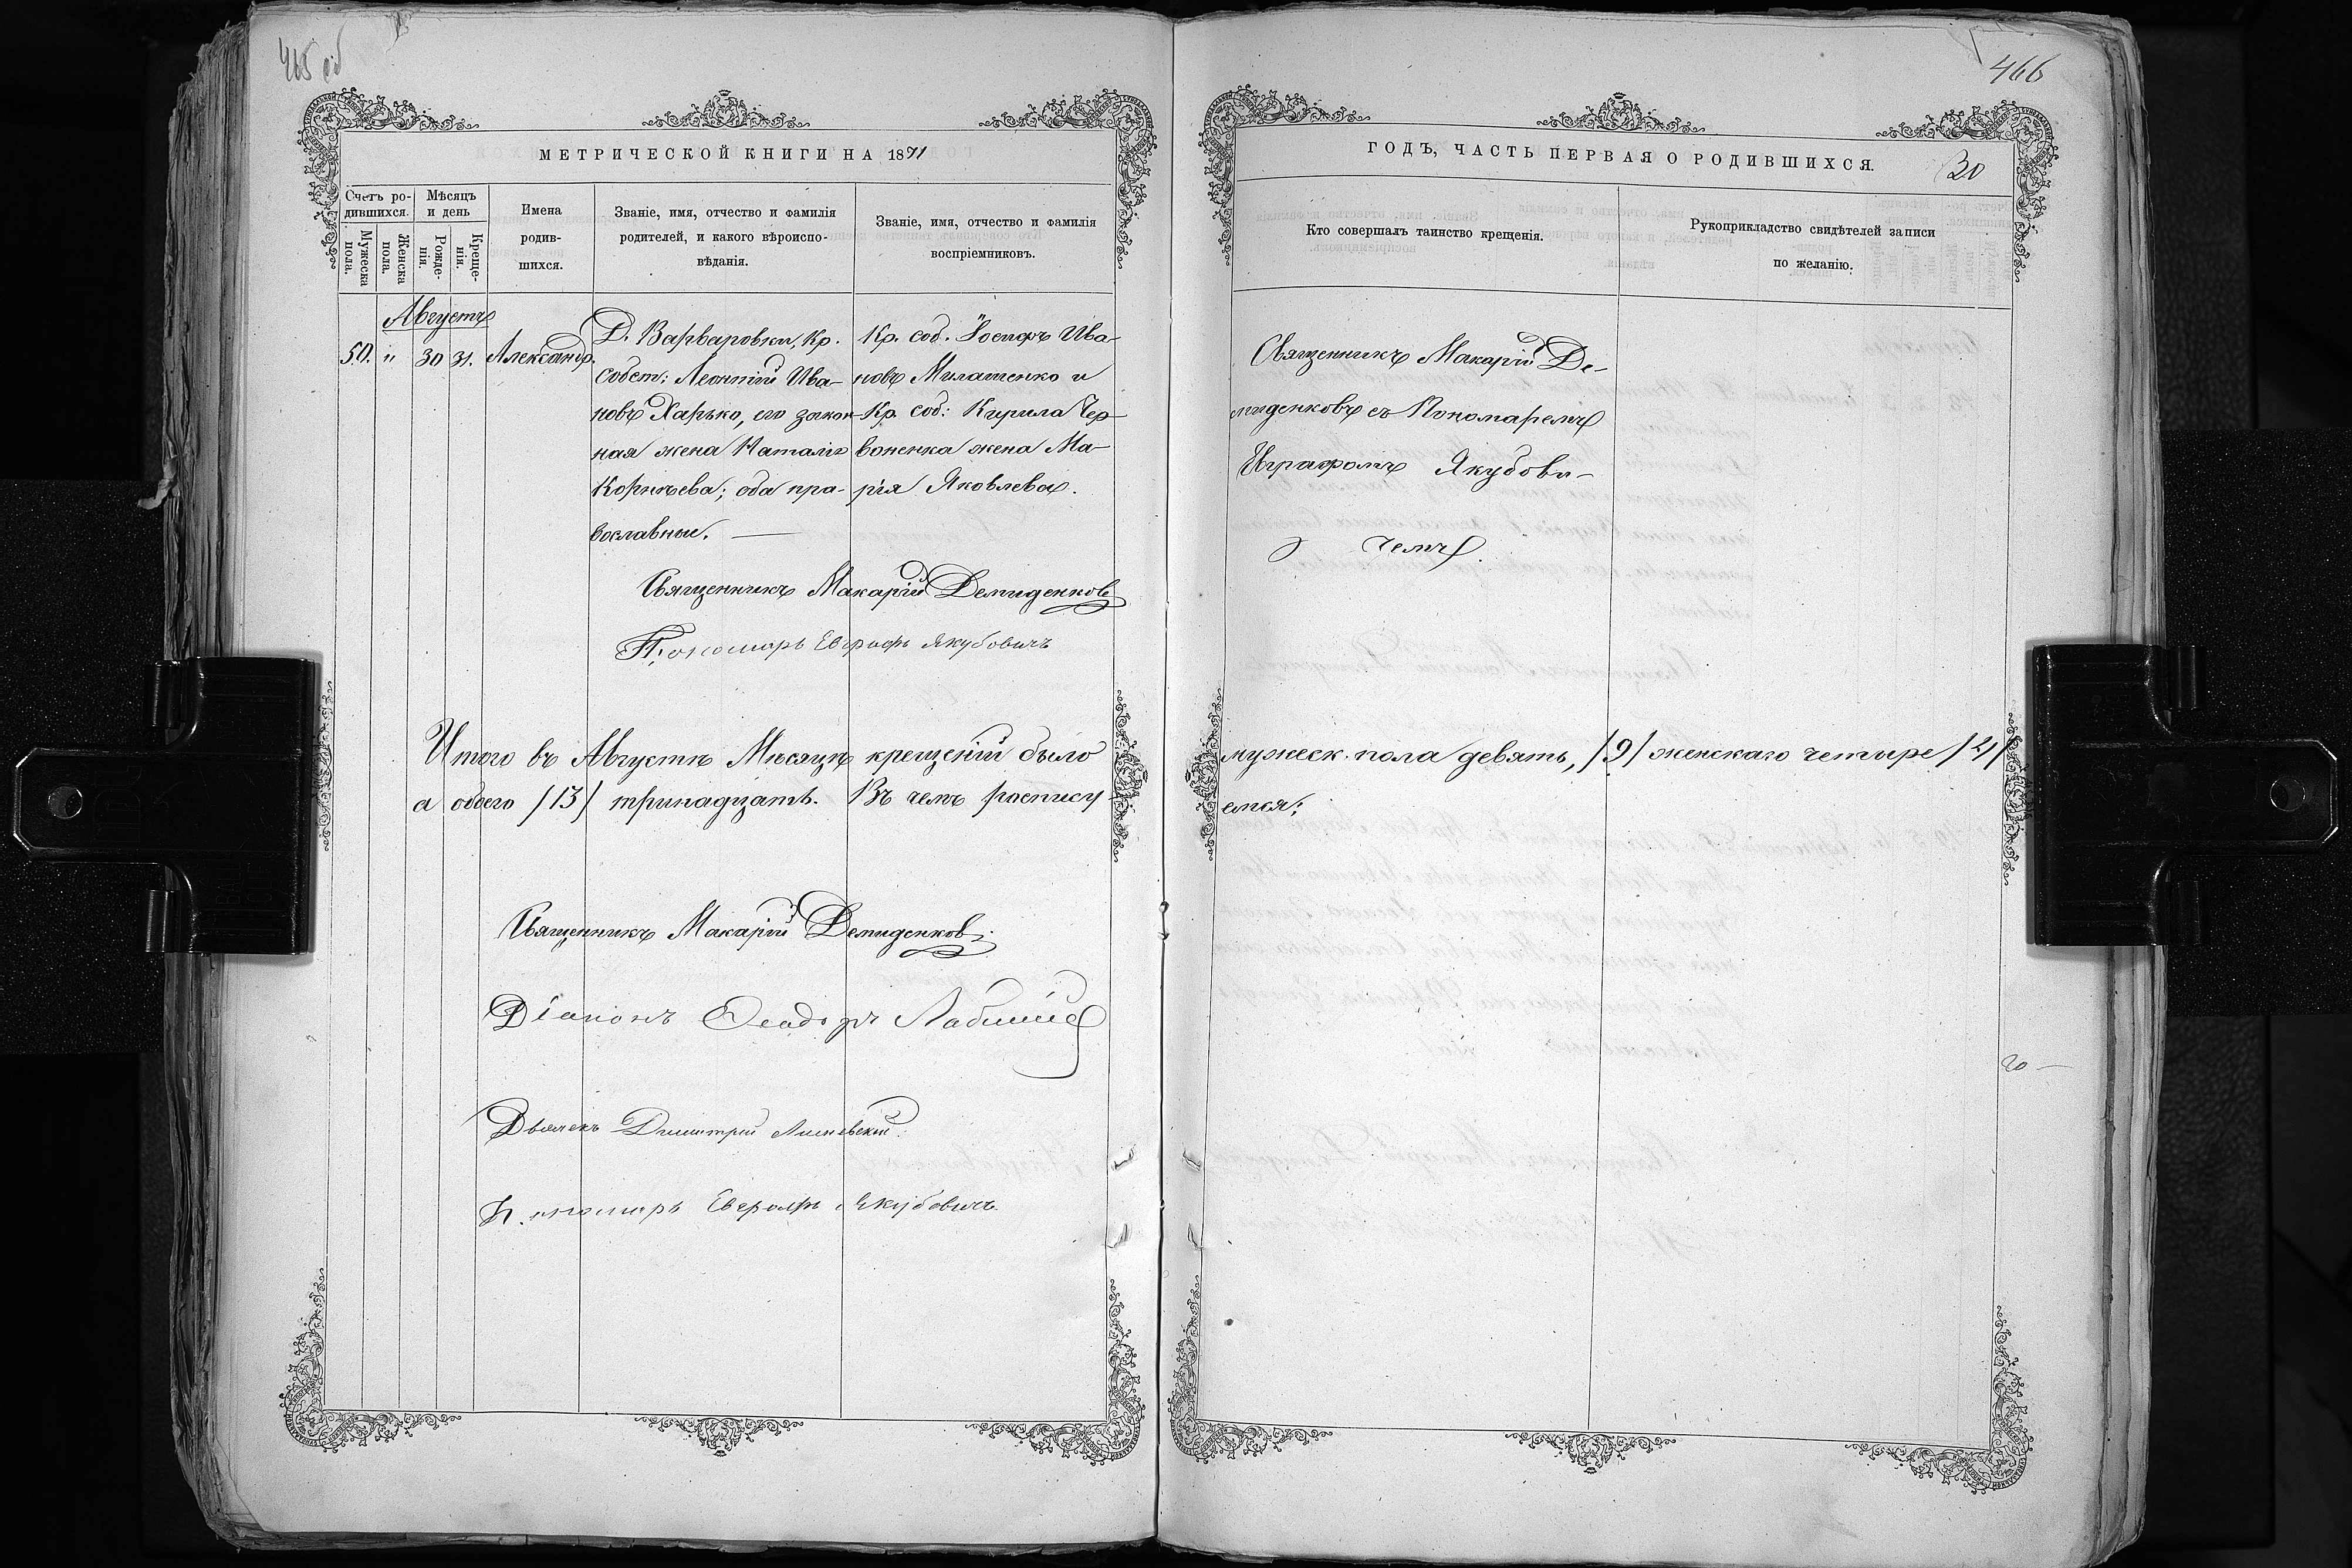 465 об
МЕТРИЧЕСКОЙ КНИГИ НА 1871
Счетъ ро-
дившихся.
Мѣсяцъ
и день
Имена
родив-
шихся.
Званіе, имя, отчество и фамилія
родителей, и какого вѣроиспо-
вѣданія.
Званіе, имя, отчество и фамилія
воспріемниковъ.
Мужеска
пола.
Женска
пола.
Рожде-
нія.
Креще-
нія.
Августъ
50. " 30 31. Александр.
Д. Варваровки, Кр.
собст: Леонтій Ива-
новъ Харько, его закон-
ная жена Наталія
Корнѣева; оба пра-
вославные.
Кр. соб. Іосифъ Ива-
новъ Милашенко и
Кр. соб: Кирила Чер-
воненка жена Ма-
рія Яковлева.
Священникъ Макарій Демиденков
Пономарь Евграфъ Якубовичъ
Итого въ Августѣ Мѣсяцѣ крещеній было
а обоего /13/ тринадцать. Въ чемъ распису-
Священникъ Макарій Демиденковъ.
Діаконъ Ѳеодоръ
Дьячекъ Димитрій
Пономарь Евграфъ Якубовичъ
466
ГОДЪ, ЧАСТЬ ПЕРВАЯ О РОДИВШИХСЯ.
30
Кто совершалъ таинство крещенія.
Рукоприкладство свидѣтелей записи
по желанію.
Священникъ Макарій Де-
миденковъ съ Пономаремъ
Евграфомъ Якубови-
чемъ.
мужеск. пола девять, /9/ женскаго четыре /4/
емся: